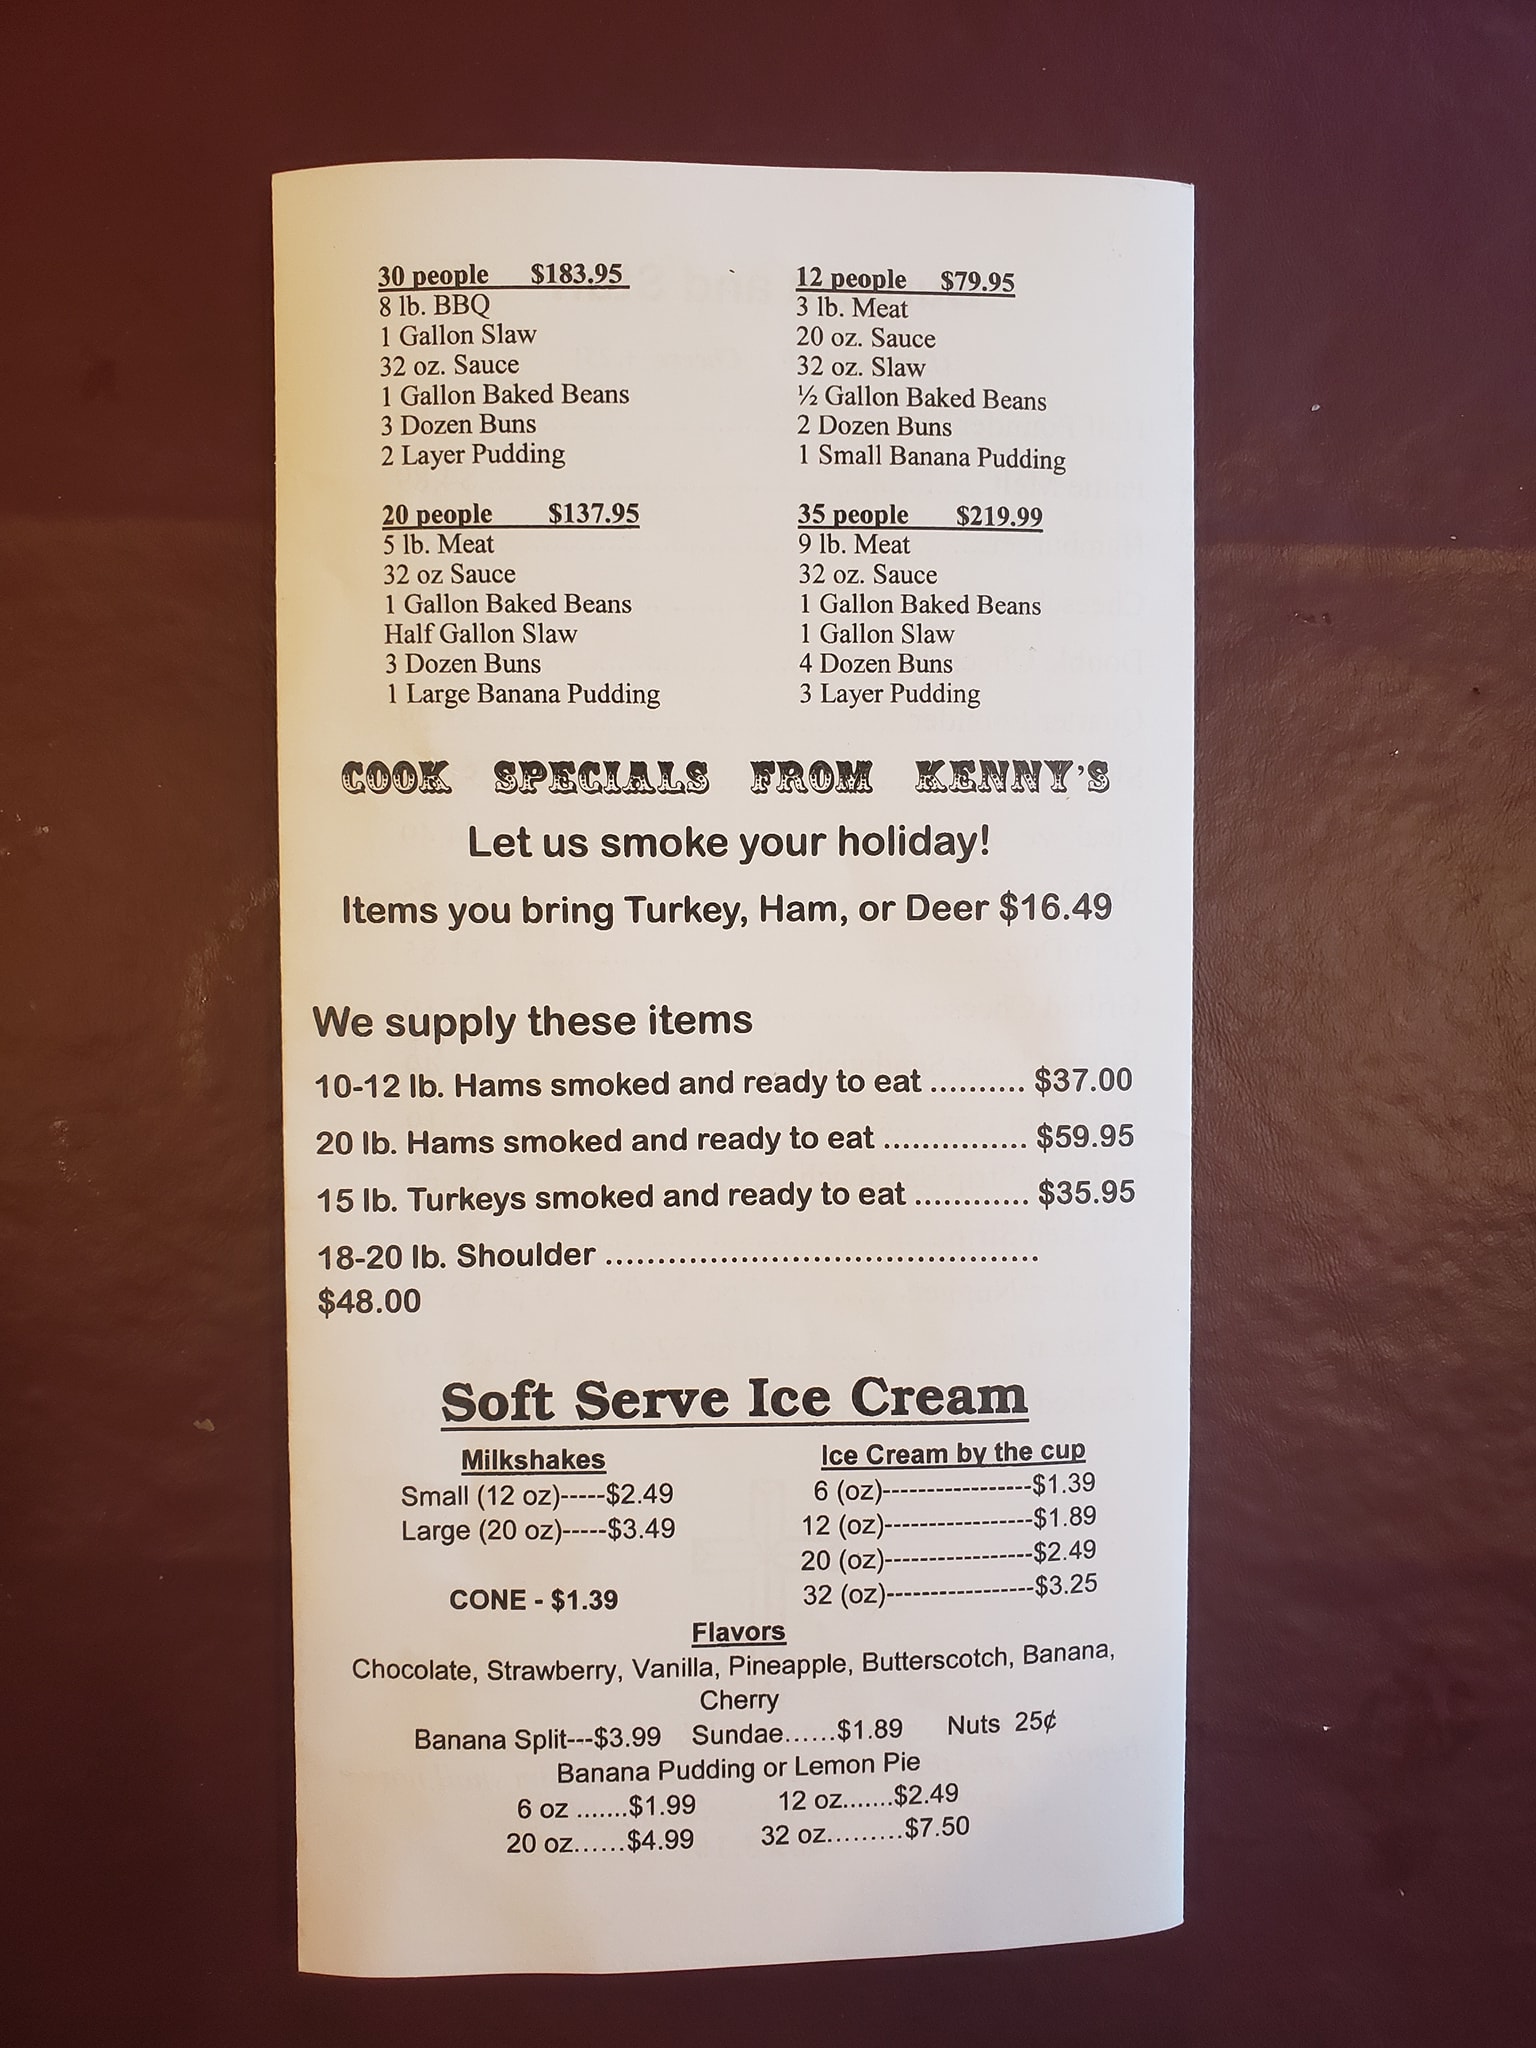 30 people $183.95
8 lb. BBQ
1 Gallon Slaw
32 oz. Sauce
1 Gallon Baked Beans
3 Dozen Buns
2 Layer Pudding
12 people $79.95
3 lb. Meat
20 oz. Sauce
32 oz. Slaw
½ Gallon Baked Beans
2 Dozen Buns
1 Small Banana Pudding
20 people $137.95
5 lb. Meat
32 oz Sauce
1 Gallon Baked Beans
Half Gallon Slaw
3 Dozen Buns
1 Large Banana Pudding
35 people $219.99
9 lb. Meat
32 oz. Sauce
1 Gallon Baked Beans
1 Gallon Slaw
4 Dozen Buns
3 Layer Pudding
COOK SPECIALS FROM KENNY'S
Let us smoke your holiday!
Items you bring Turkey, Ham, or Deer $16.49
We supply these items
10-12 lb. Hams smoked and ready to eat .......... $37.00
20 lb. Hams smoked and ready to eat ............... $59.95
15 lb. Turkeys smoked and ready to eat ............ $35.95
18-20 lb. Shoulder ..........................................
$48.00
Soft Serve Ice Cream
Milkshakes
Small (12 oz)-----$2.49
Large (20 oz)-----$3.49
CONE - $1.39
Ice Cream by the cup
6 (oz)-----------------$1.39
12 (oz)-----------------$1.89
20 (oz)-----------------$2.49
32 (oz)-----------------$3.25
Flavors
Chocolate, Strawberry, Vanilla, Pineapple, Butterscotch, Banana,
Cherry
Banana Split---$3.99 Sundae......$1.89 Nuts 25¢
Banana Pudding or Lemon Pie
6 oz .......$1.99 12 oz.......$2.49
20 oz......$4.99 32 oz.........$7.50